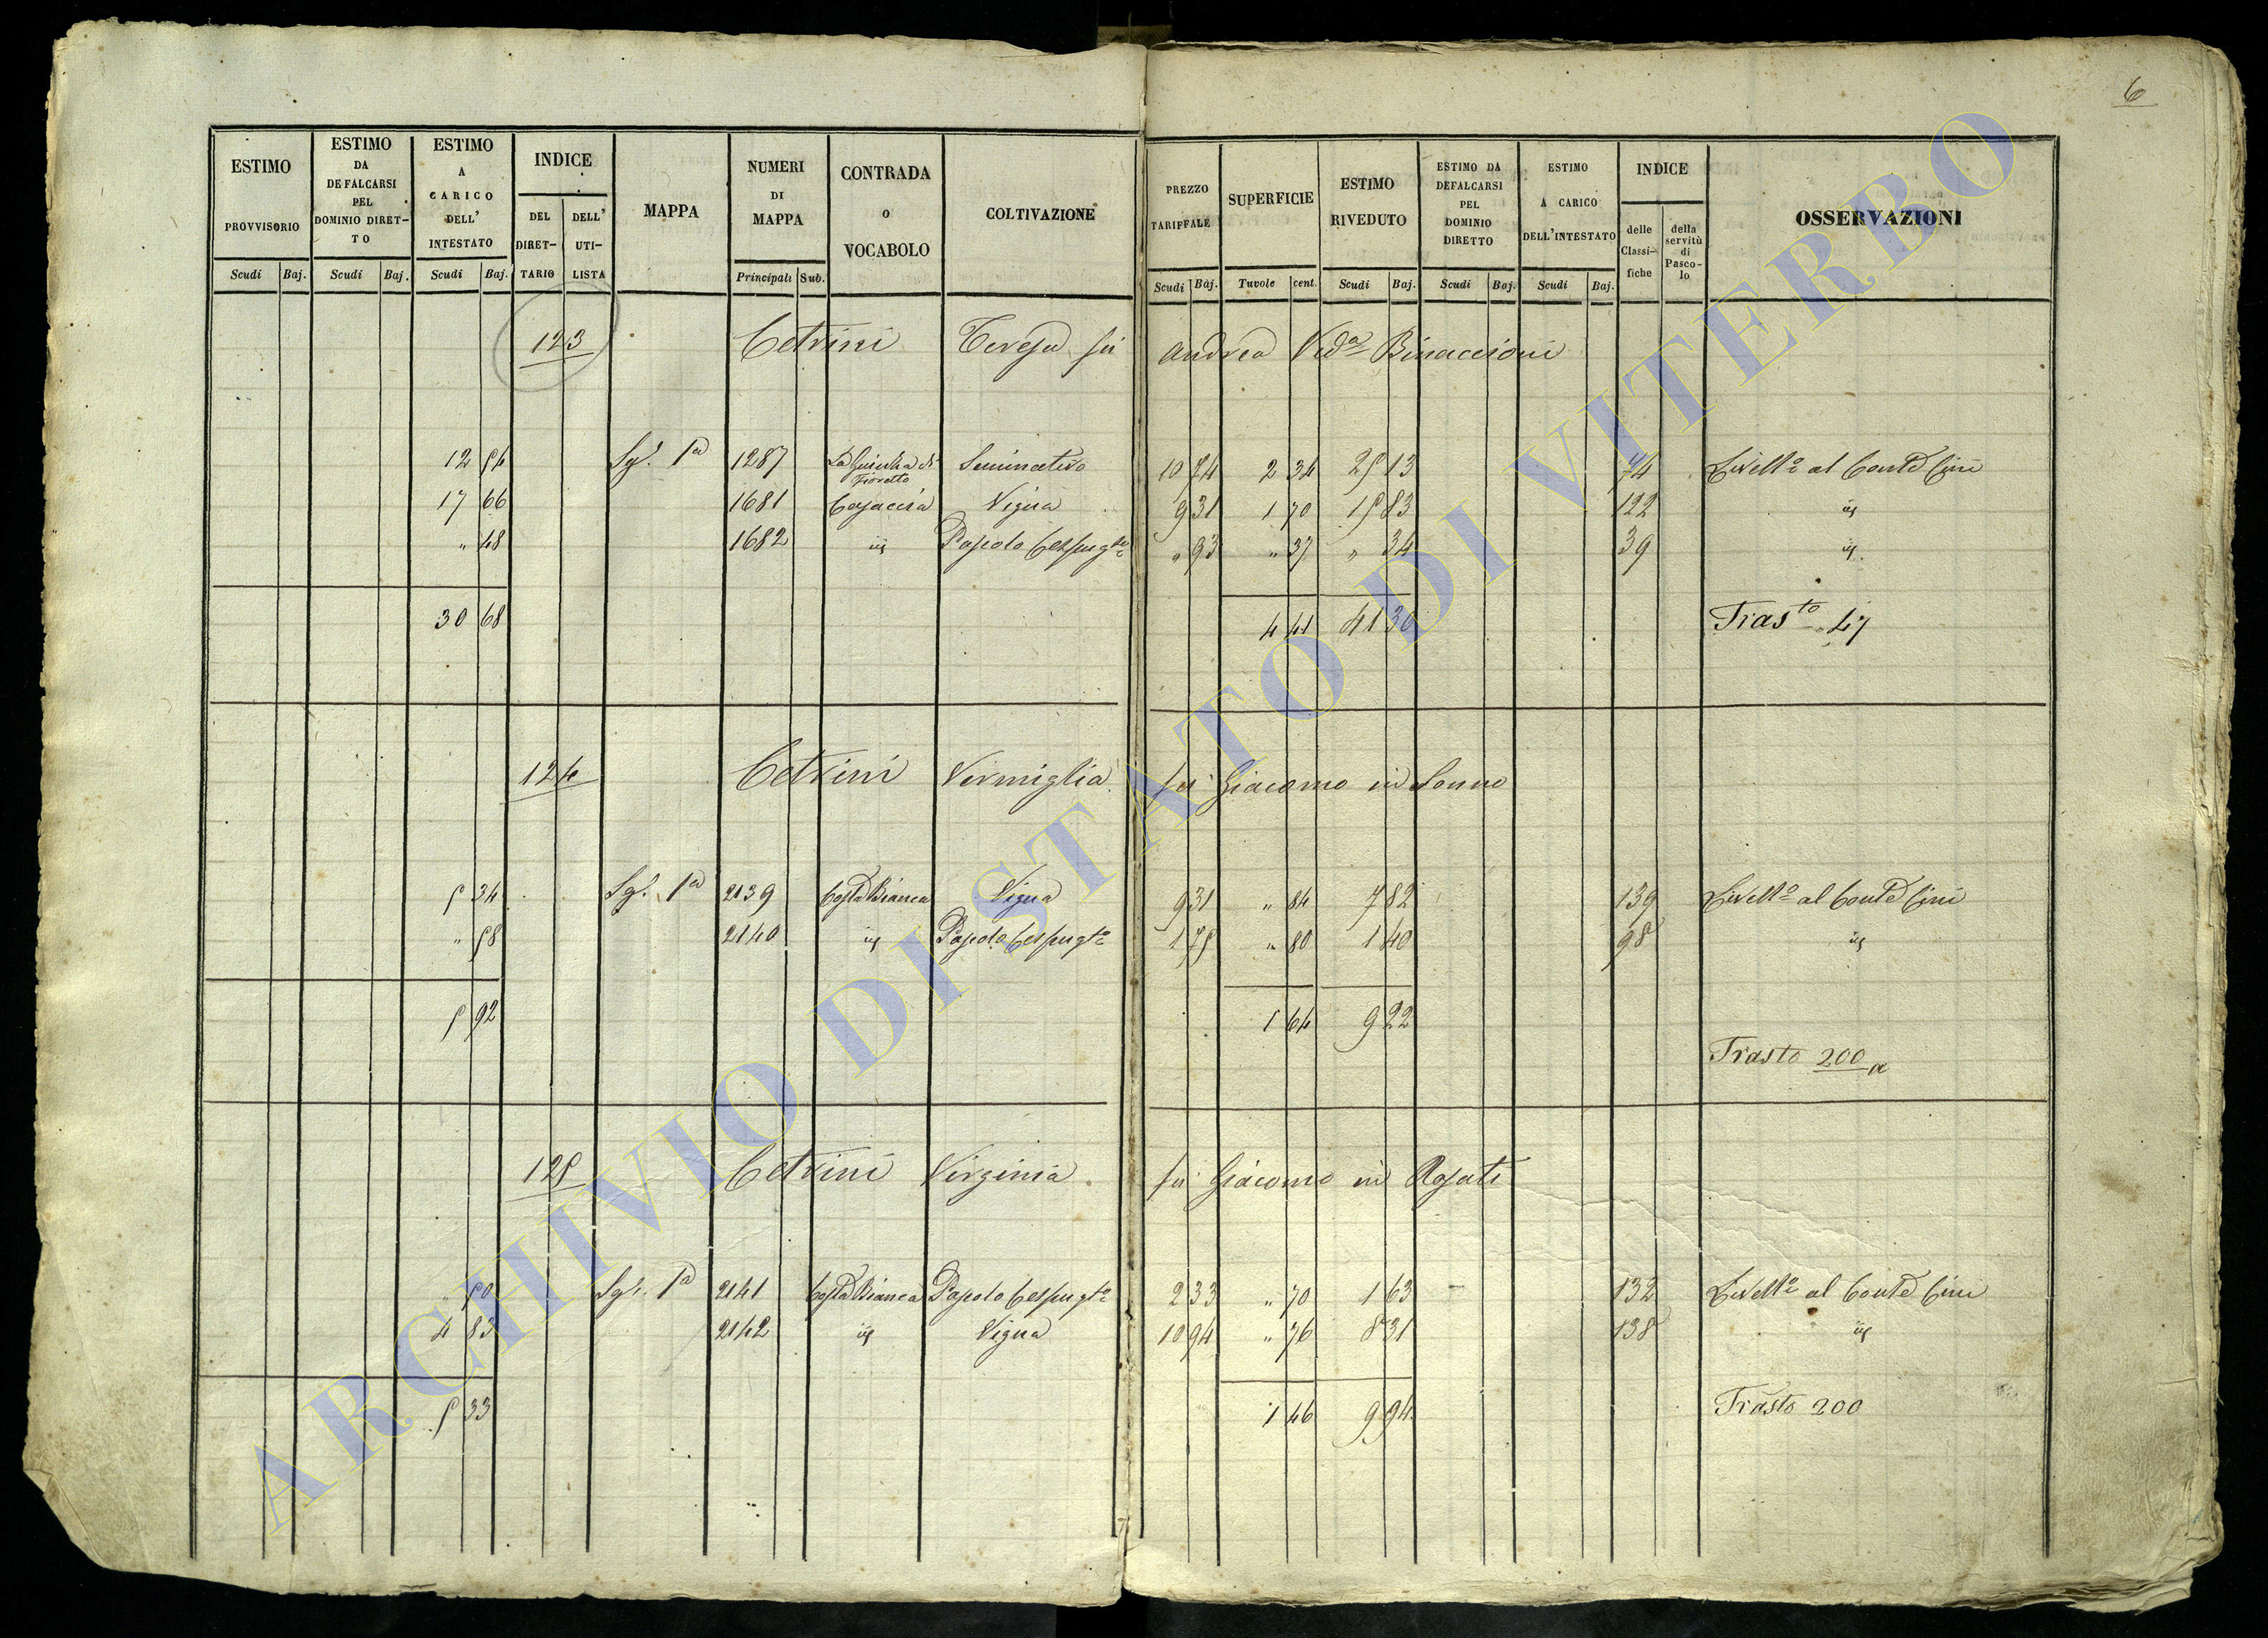 6
ESTIMO PROVVISORIO
Scudi Baj.
ESTIMO DA DEFALCARSI PEL DOMINIO DIRET-TO
Scudi Baj.
ESTIMO A CARICO DELL' INTESTATO
Scudi Baj.
INDICE
DEL DIRET-TARIO
DELL' UTI-LISTA
MAPPA
NUMERI DI MAPPA
Principali Sub.
CONTRADA O VOCABOLO
COLTIVAZIONE
PREZZO TARIFFALE
Scudi Baj.
SUPERFICIE
Tavole cent.
ESTIMO RIVEDUTO
Scudi Baj.
ESTIMO DA DEFALCARSI PEL DOMINIO DIRETTO
Scudi Baj.
ESTIMO A CARICO DELL'INTESTATO
Scudi Baj.
INDICE
delle Classi-fiche
della servitù di Pasco-lo
OSSERVAZIONI
123 Cetrini Teresa fu Andrea Ved.a Binaccioni
12 54 Sg. 1a 1287 La Fioretto Seminativo 10 74 2 34 25 13 74 Livell.o al Conte Cini
17 66 1681 Casaccia Vigna 9 31 1 70 15 83 122 id
" 48 1682 id Pascolo Cespugto " 93 " 37 " 34 39 id
30 68 4 41 41 30 Trasto 47
124 Cetrini Vermiglia fu Giacomo in Sonno
5 34 Sg. 1a 2139 Costa Bianca Vigna 9 31 " 84 7 82 139 Livell.o al Conte Cini
" 58 2140 id Pascolo Cespugto 1 75 " 80 1 40 98 id
5 92 1 64 9 22
Trasto 200
125 Cetrini Virginia fu Giacomo in Rosati
50 Sg. 1a 2141 Costa Bianca Pascolo Cespugto 2 33 " 70 1 63 132 Livell.o al Conte Cini
4 83 2142 id Vigna 10 94 " 76 8 31 138 id
5 33 1 46 9 94 Trasto 200
ARCHIVIO DI STATO DI VITERBO